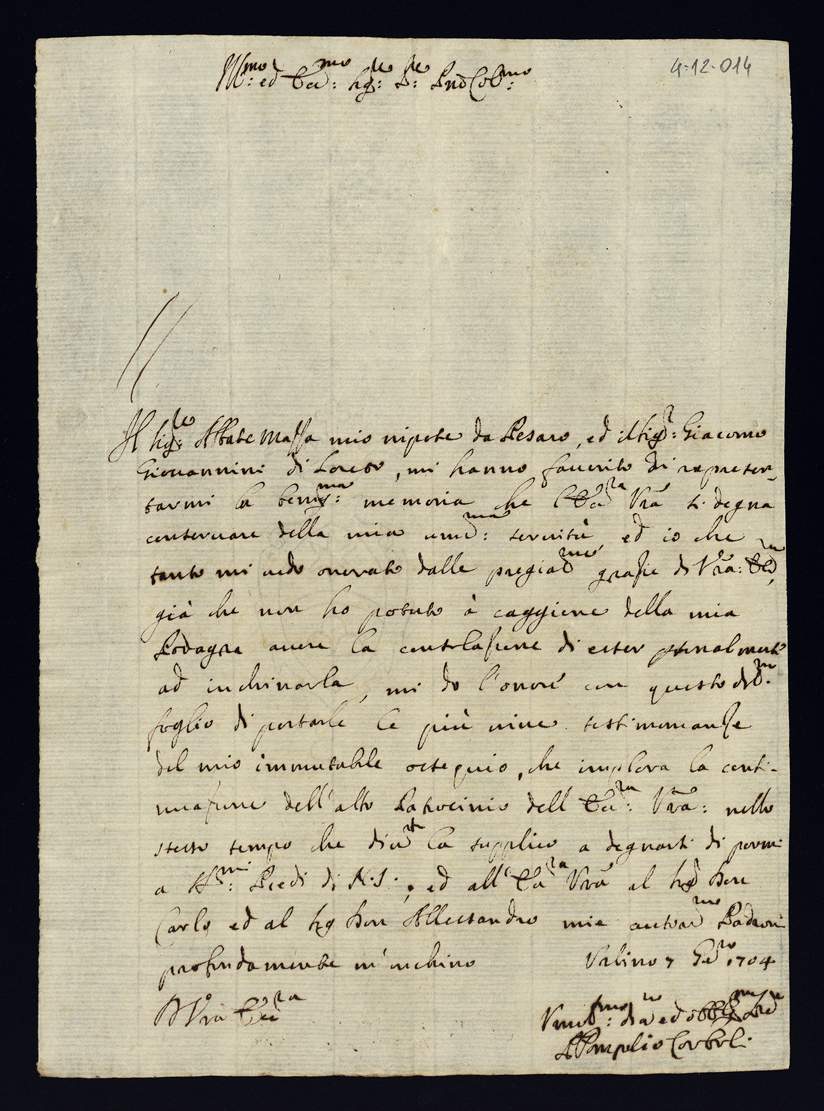 Ill^mo: ed Ecc^mo: Sig^re: P^re Pnd Col^mo:
4-12-014
Il Sig^re: Abbate Massa mio nipote da Pesaro, ed il Sig^r: Giacomo
Giovannini di Loreto, mi hanno favorito di represen-
tarmi la benig^ma: memoria che l'Ecc^za Vrã si degna
conservare della mia um^ma: servitù, ed io che
tanto mi vedo onorato dalle pregiad^me grazie di Vrã: Ecc^za,
già che non ho potuto à caggione della mia
Podagra avere la consolazione di esser personalmente
ad inchinarla, mi do l'onore con questo
foglio di portarle le più vive testimonianze
del mio immutabile ossequio, che implora la conti-
nuazione dell'alto Patrocinio dell'Ecc^za: Vrã: nello
stesso tempo che la supplico a degnarsi di pormi
a Piedi di N. S:, ed all'Ecc^za Vrã al Sig Don
Carlo, ed al Sig Don Alessandro miei Padroni
profondamente m'inchino Urbino 7 Gen^ro 1704
D Vrã Ecc^za
Um^mo: ed obb^mo
Pompilio Corboli